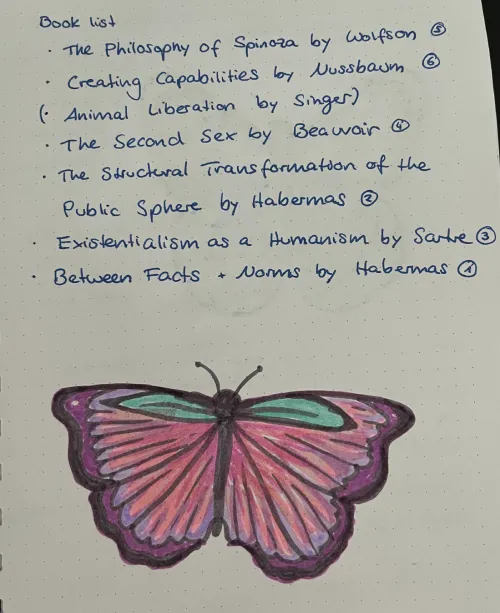 Book list
· The Philosophy of Spinoza by Wolfson ⑤
· Creating Capabilities by Nussbaum ⑥
(· Animal Liberation by Singer)
· The Second Sex by Beauvoir ④
· The Structural Transformation of the
Public Sphere by Habermas ②
· Existentialism as a Humanism by Sartre ③
· Between Facts + Norms by Habermas ①